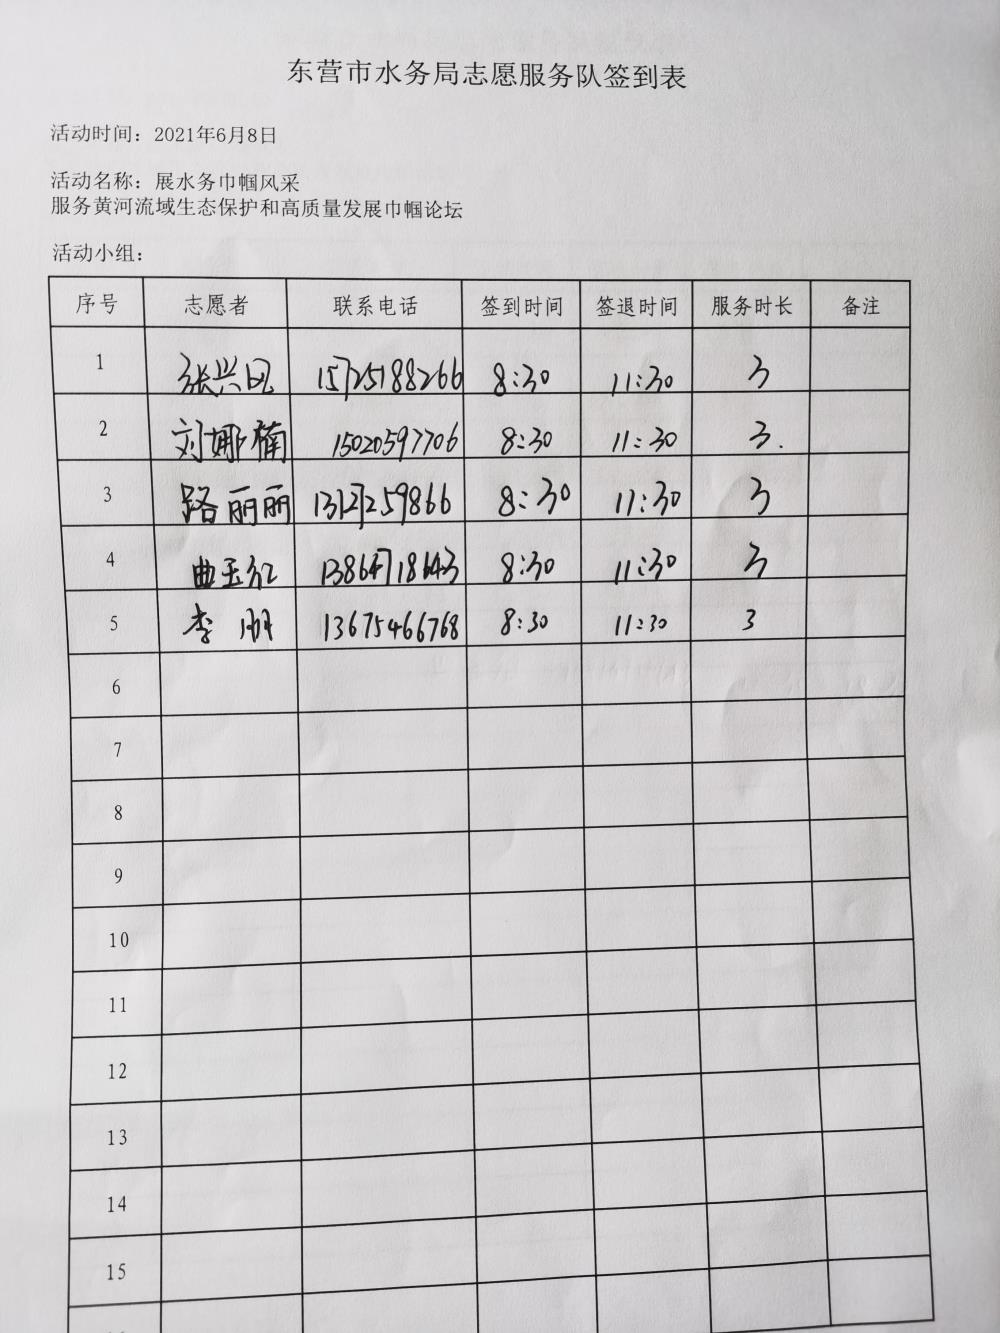 东营市水务局志愿服务队签到表
活动时间：2021年6月8日
活动名称：展水务巾帼风采
服务黄河流域生态保护和高质量发展巾帼论坛
活动小组：
序号 志愿者 联系电话 签到时间 签退时间 服务时长 备注
1 张兴 15725188266 8:30 11:30 3
2 刘娜楠 15020597706 8:30 11:30 3.
3 路丽丽 8:30 11:30 3
4 曲玉红 13864718643 8:30 11:30 3
5 李 13675466768 8:30 11:30 3
6
7
8
9
10
11
12
13
14
15